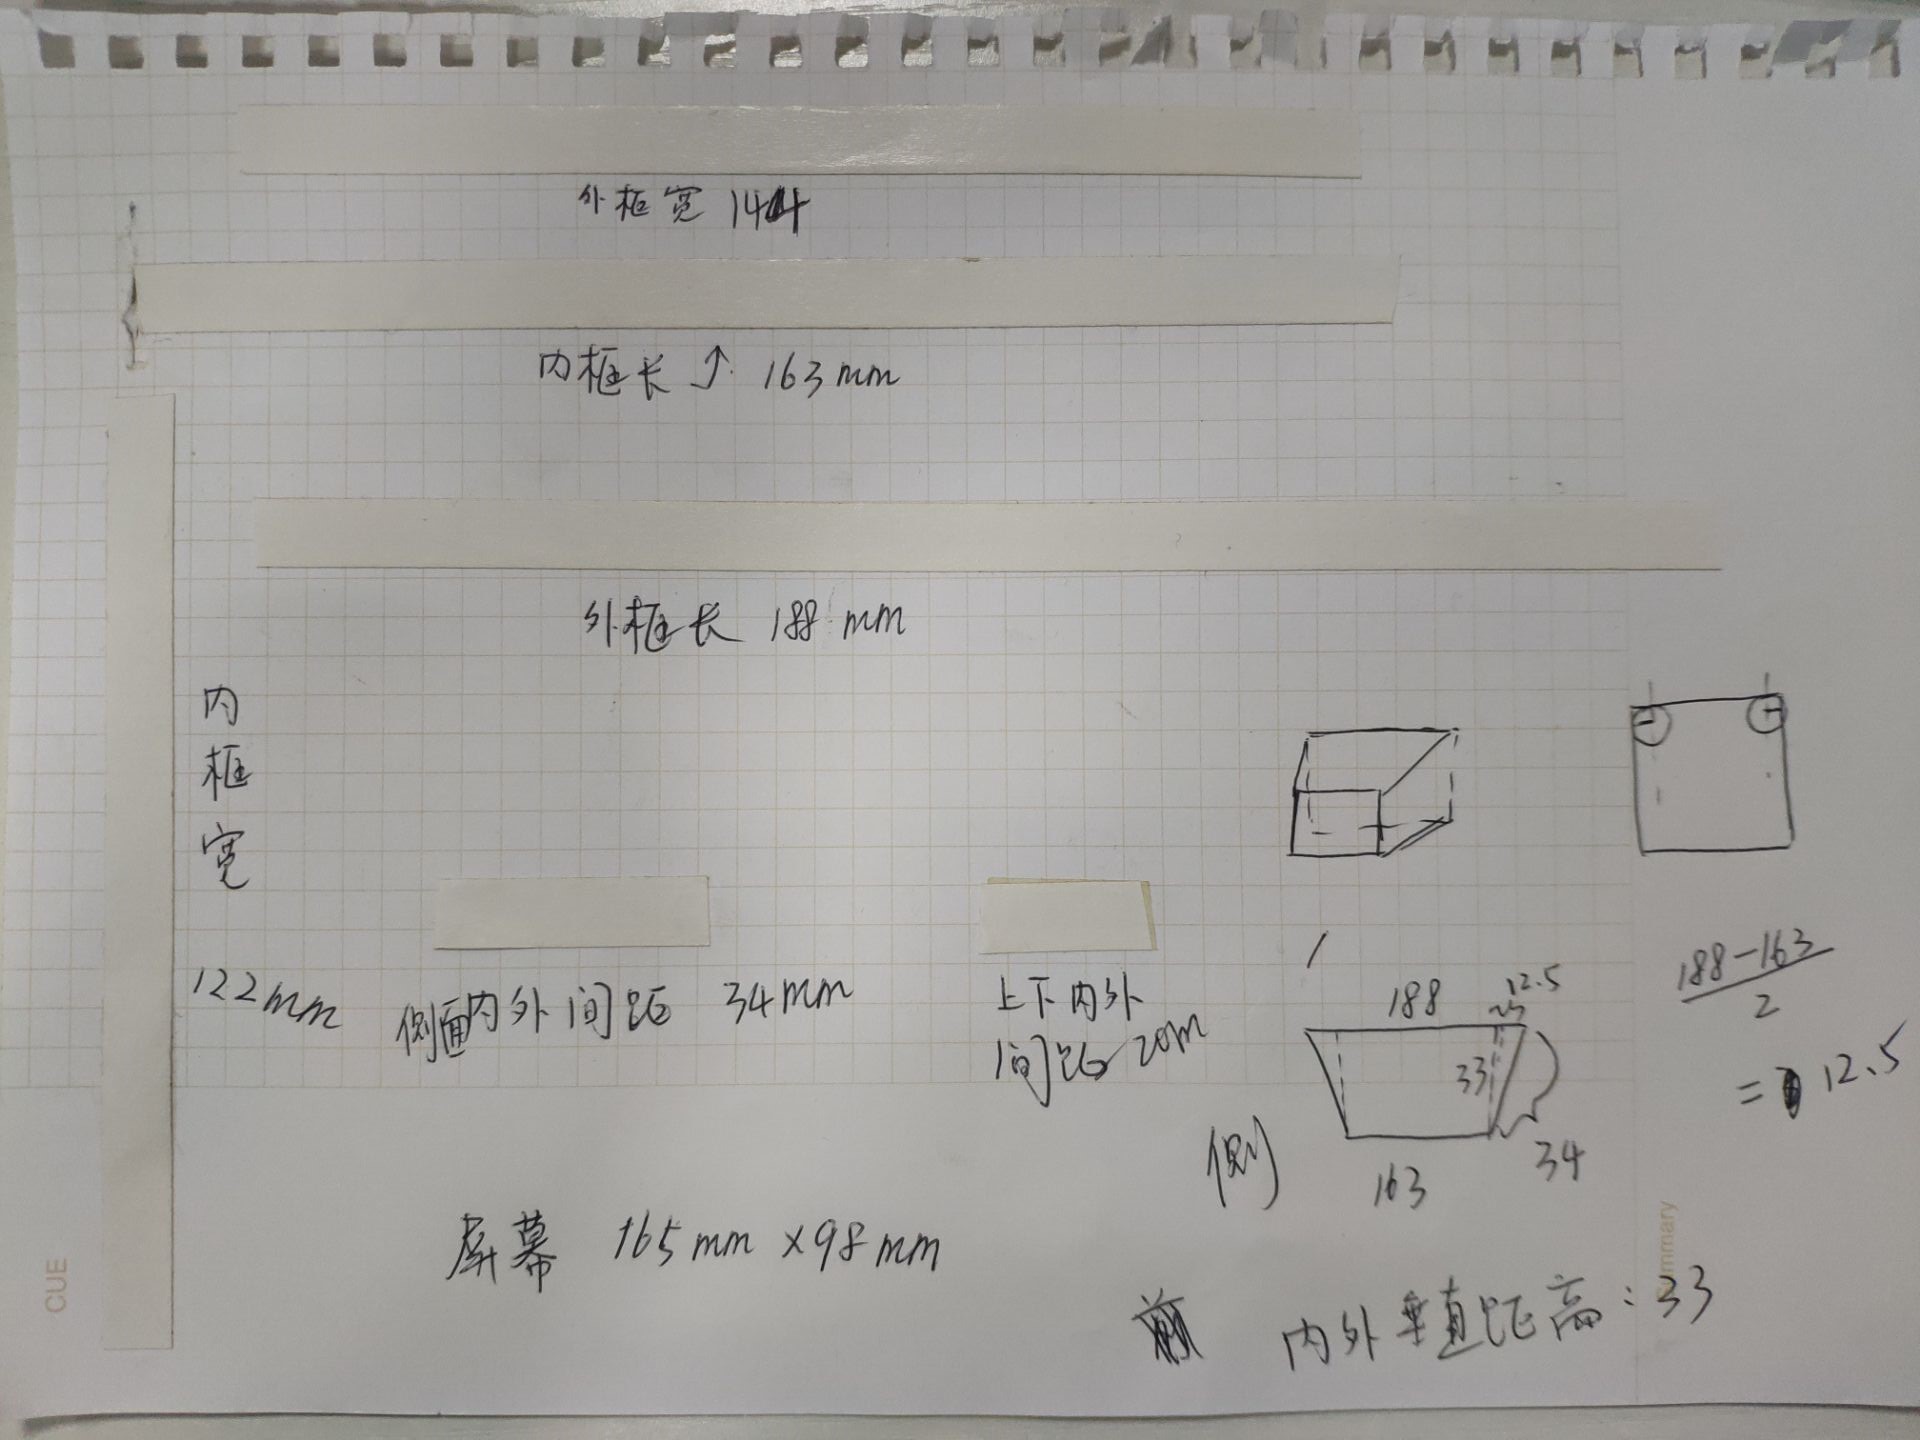 外框宽 144
内框长 ↑ 163mm
外框长 188 mm
内
框
宽
122mm
侧面内外间距 34mm
上下内外
间距 20m
188 12.5
33
34
163
侧
188-163
2
= 12.5
屏幕 165mm ×98mm
内外垂直距高: 33
CUE
Summary